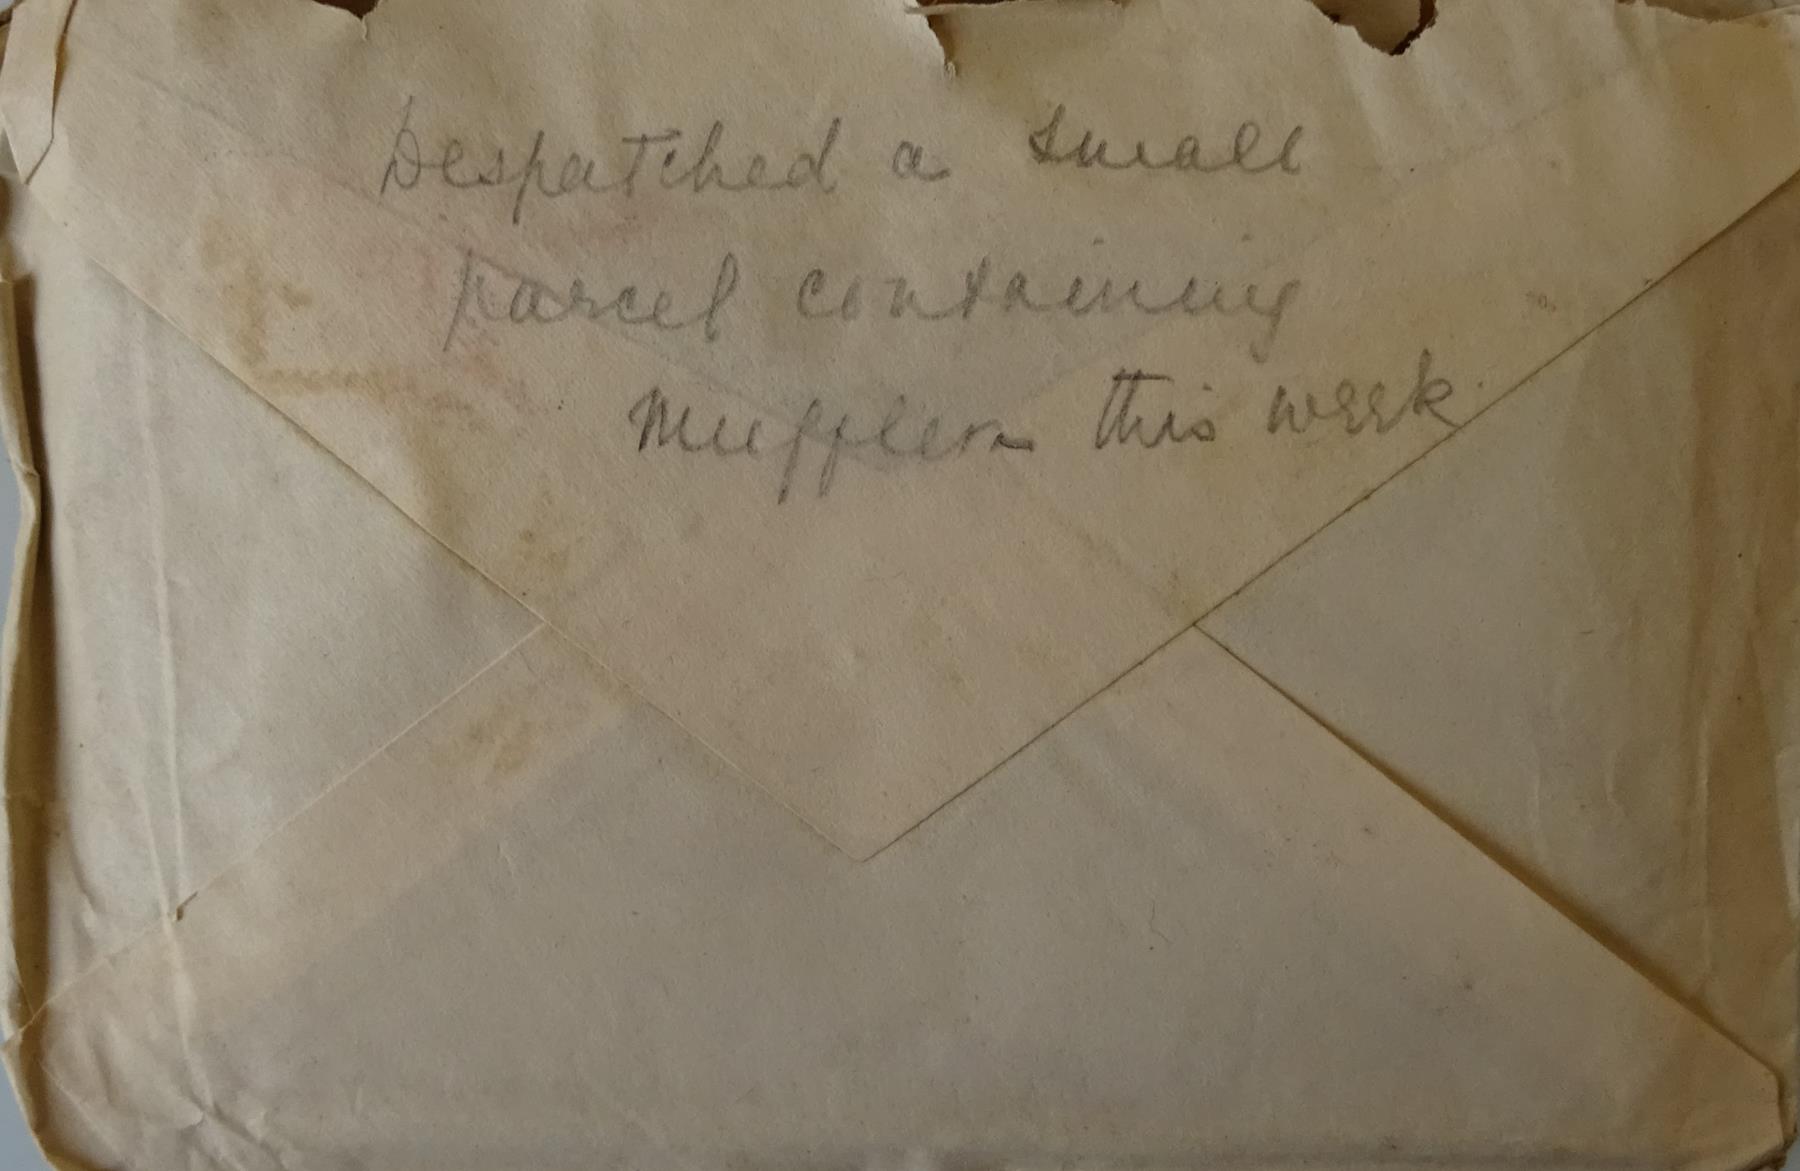 Despatched a small
parcel containing
Mufflers this week.